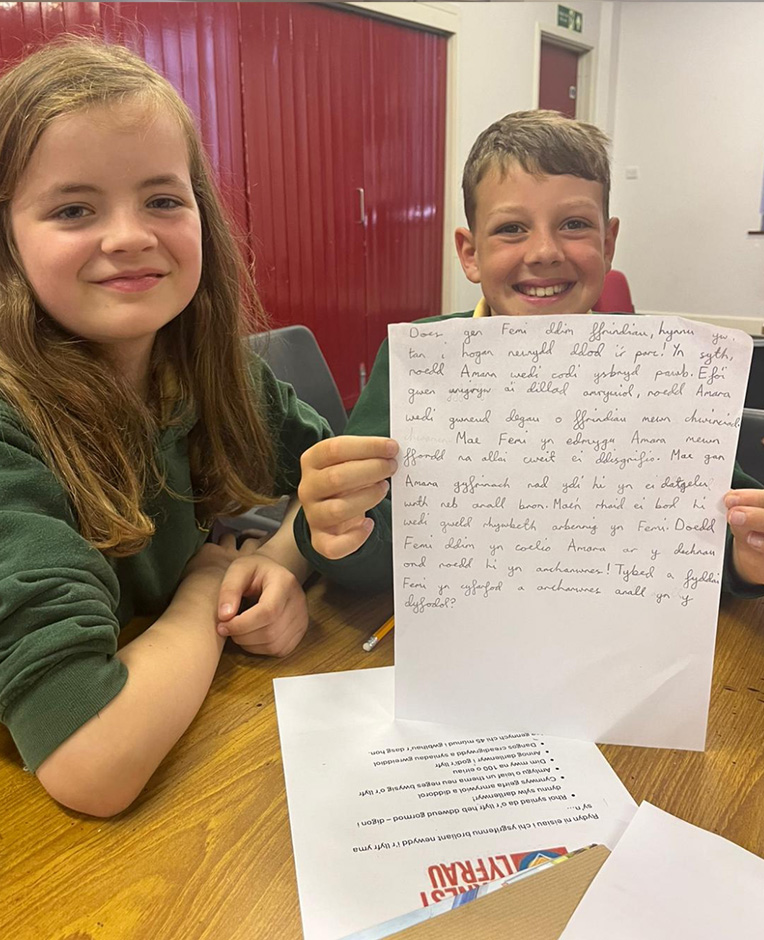 Does gen Femi ddim ffrindiau, hynny yw,
tan i hogan newydd ddod i'r parc. Yn syth,
roedd Amara wedi codi ysbryd pawb. Efo'i
gwen unigryw a'i dillad anryuiol, roedd Amara
wedi gwneud degau o ffrindiau mewn chwinciad
Mae Femi yn edmygu Amara mewn
ffordd na allai cweit ei ddisgrifio. Mae gan
Amara gyfrinach nad ydi hi yn ei datgelu
wrth neb arall bron. Mae'n rhaid ei bod hi
wedi gweld rhywbeth arbennig yn Femi. Doedd
Femi ddim yn coelio Amara ar y dechrau
ond roedd hi yn archarwres! Tybed a fydd
Femi yn cyfarfod a archarwres arall yn y
dyfodol?
LYFRAU
Rydyn ni eisiau i chi ysgrifennu broliant newydd i'r llyfr yma
sy'n...
• Rhoi syniad da o'r llyfr heb ddweud gormod – digon i
dynnu sylw darllenwyr!
• Cynnwys geirfa amrywiol a diddorol
• Amlygu o leiaf un thema neu neges bwysig o'r llyfr
• Dim mwy na 100 o eiriau
• Annog darllenwyr i godi'r llyfr
• Dangos creadigrwydd a syniadau gwreiddiol
gennych chi 45 munud i gwblhau'r dasg hon.